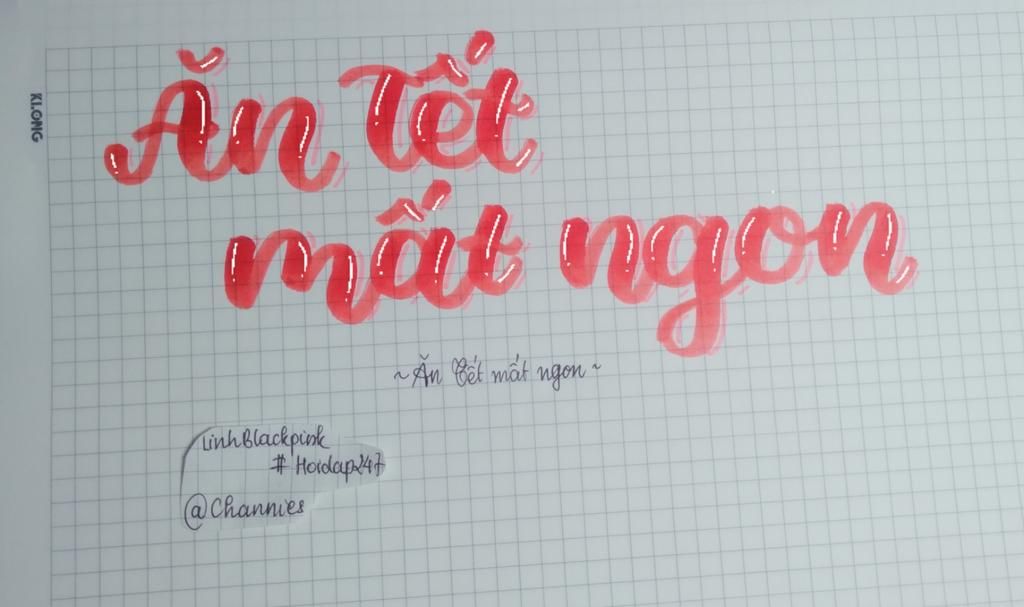 KLONG
Ăn Tết
mất ngon
~Ăn Tết mất ngon~
LinhBlackpink
# Hoidap247
@Channies